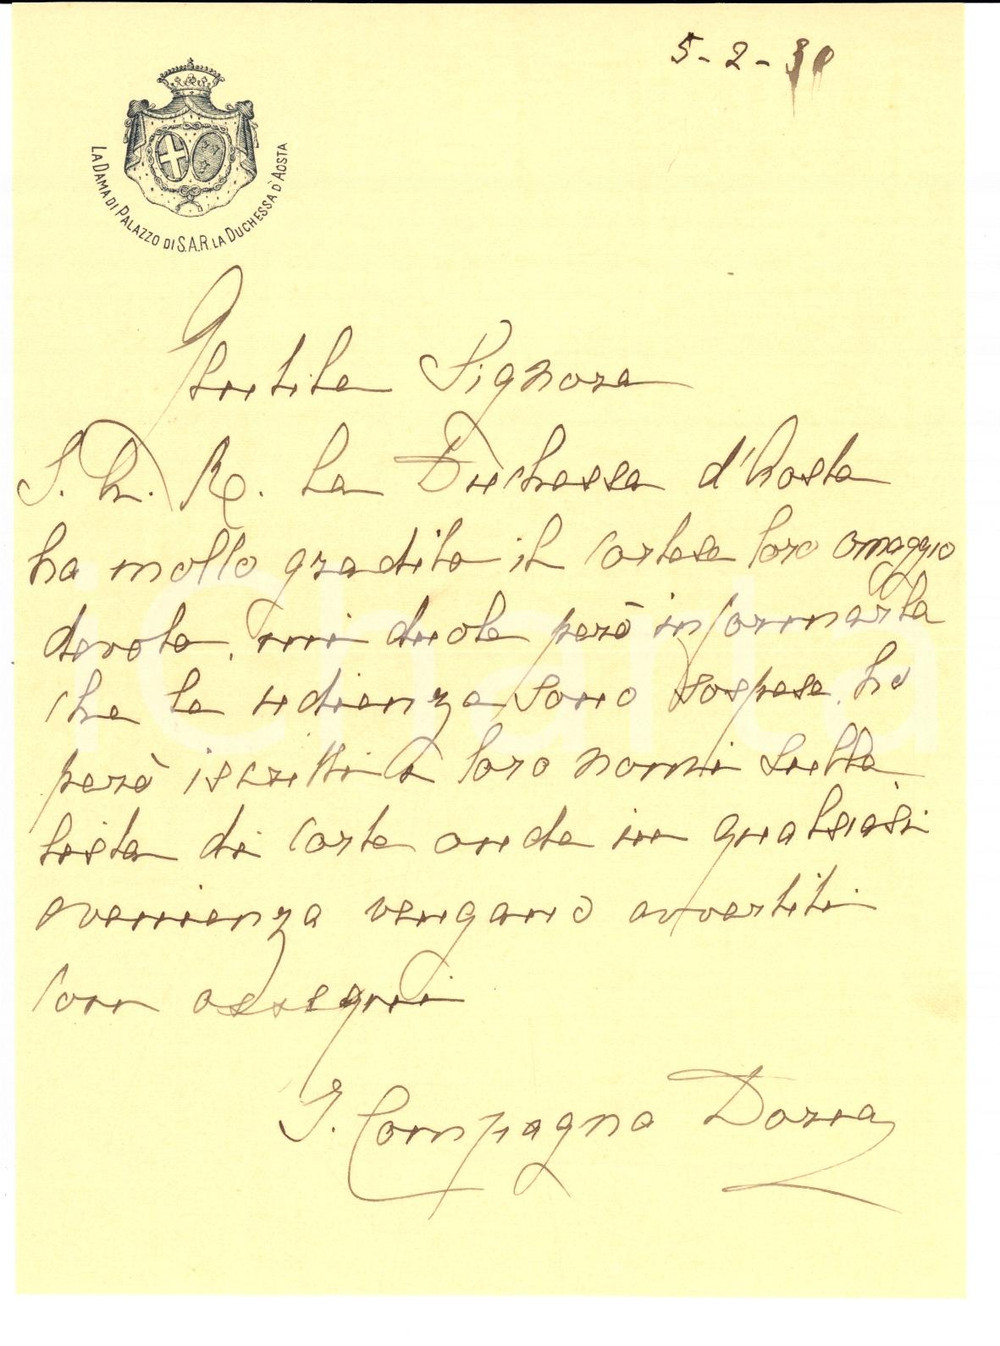 5-2-30
LA DAMA DI PALAZZO DI S.A.R. LA DUCHESSA D'AOSTA
Gentile Signora
S. A. R. la Duchessa d'Aosta
ha molto gradito il cortese loro omaggio
devoto, mi duole però informarla
che le udienze sono sospese, ho
però iscritti i loro nomi sulla
lista di corte onde in qualsiasi
evenienza vengano avvertiti
con ossequi
I. Compagna Doria